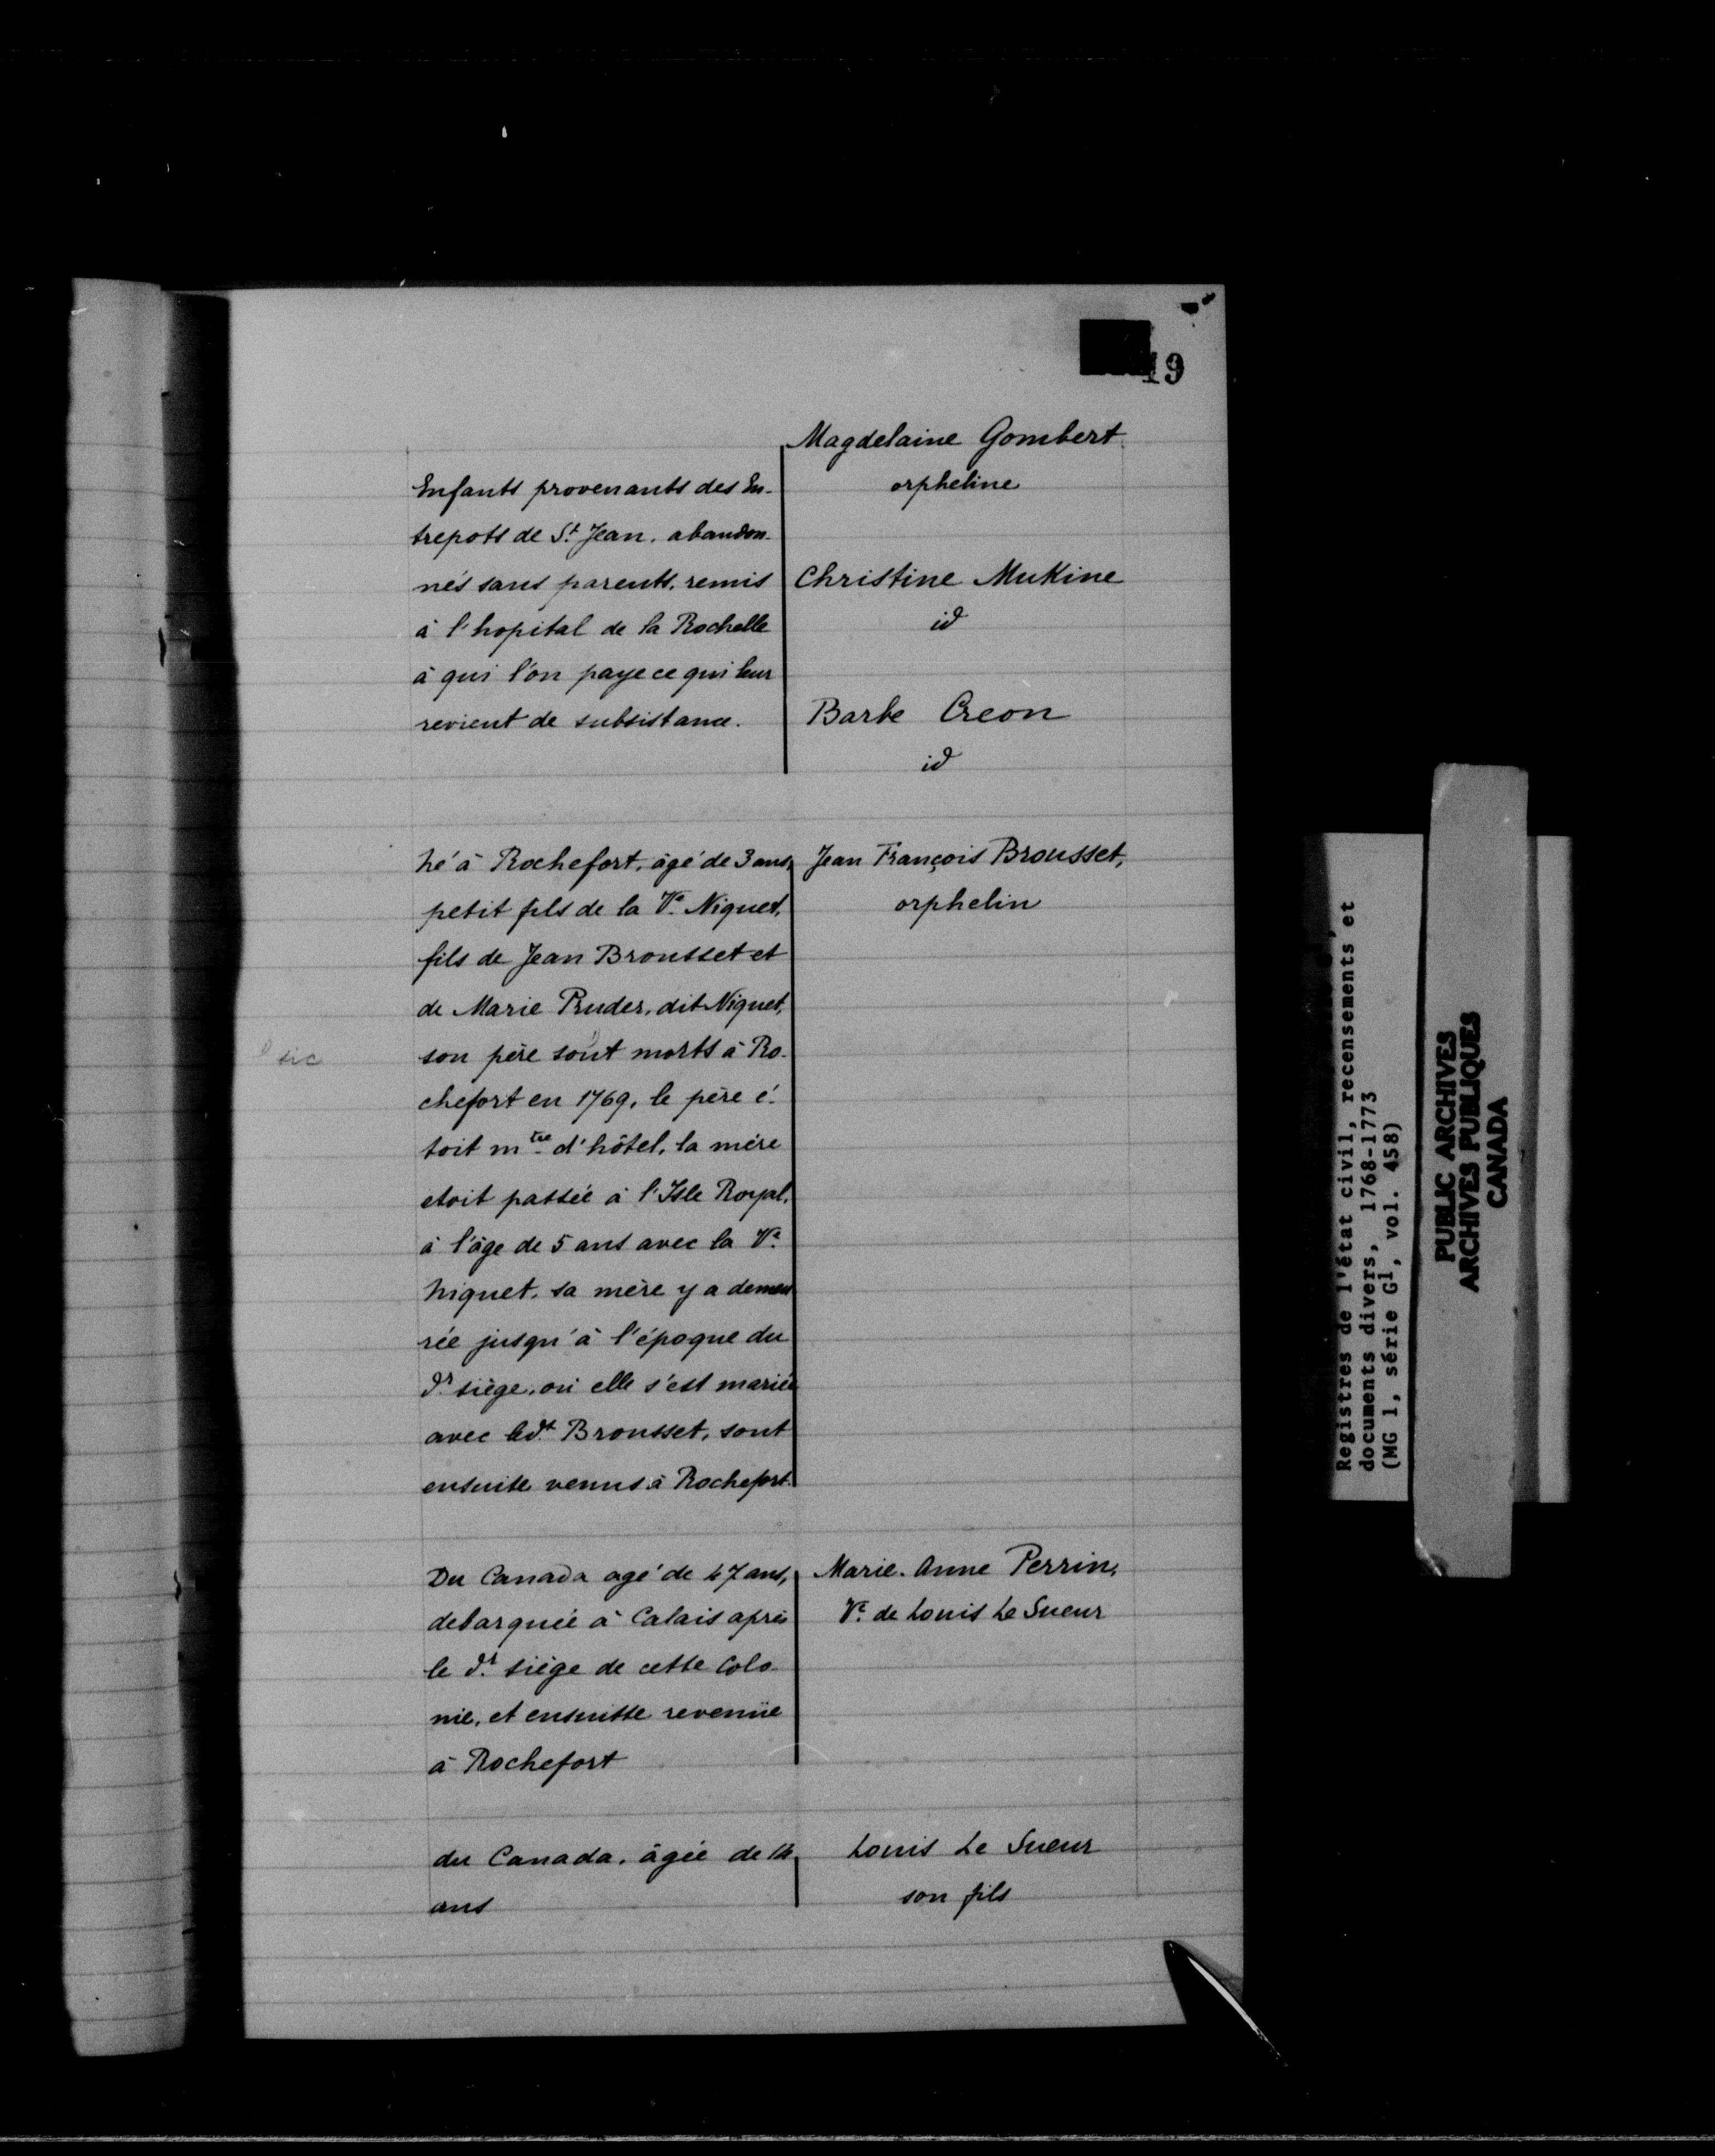 19
Magdelaine Gombert
orpheline
Enfants provenants des En-
trepots de St Jean. abandon-
nés sans parents, remis
à l'hopital de la Rochelle
à qui l'on paye ce qui leur
revient de subsistance.
Christine Mukine
id
Barbe Creon
id
Né à Rochefort, âgé de 3 ans,
petit fils de la Ve Niquet,
fils de Jean Brousset et
de Marie Pruder, dit Niquet,
son père sont morts à Ro-
chefort en 1769, le père é-
toit mtre d'hôtel, la mère
etoit passée à l'Isle Royal,
à l'âge de 5 ans avec la Ve
Niquet, sa mère y a demeu
rée jusqu'à l'époque du
dr siège, où elle s'est mariée
avec ledt Brousset, sont
ensuite venus à Rochefort.
sic
Jean François Brousset,
orphelin
Du Canada agé de 47 ans,
debarquée à Calais après
le dr siège de cette Colo-
nie, et ensuitte revenüe
à Rochefort
Marie-Anne Perrin,
Ve de Louis Le Sueur
du Canada, âgée de 14
ans
Louis Le Sueur
son fils
Registres de l'état civil, recensements et
documents divers, 1768-1773
(MG 1, série G1, vol. 458)
PUBLIC ARCHIVES
ARCHIVES PUBLIQUES
CANADA